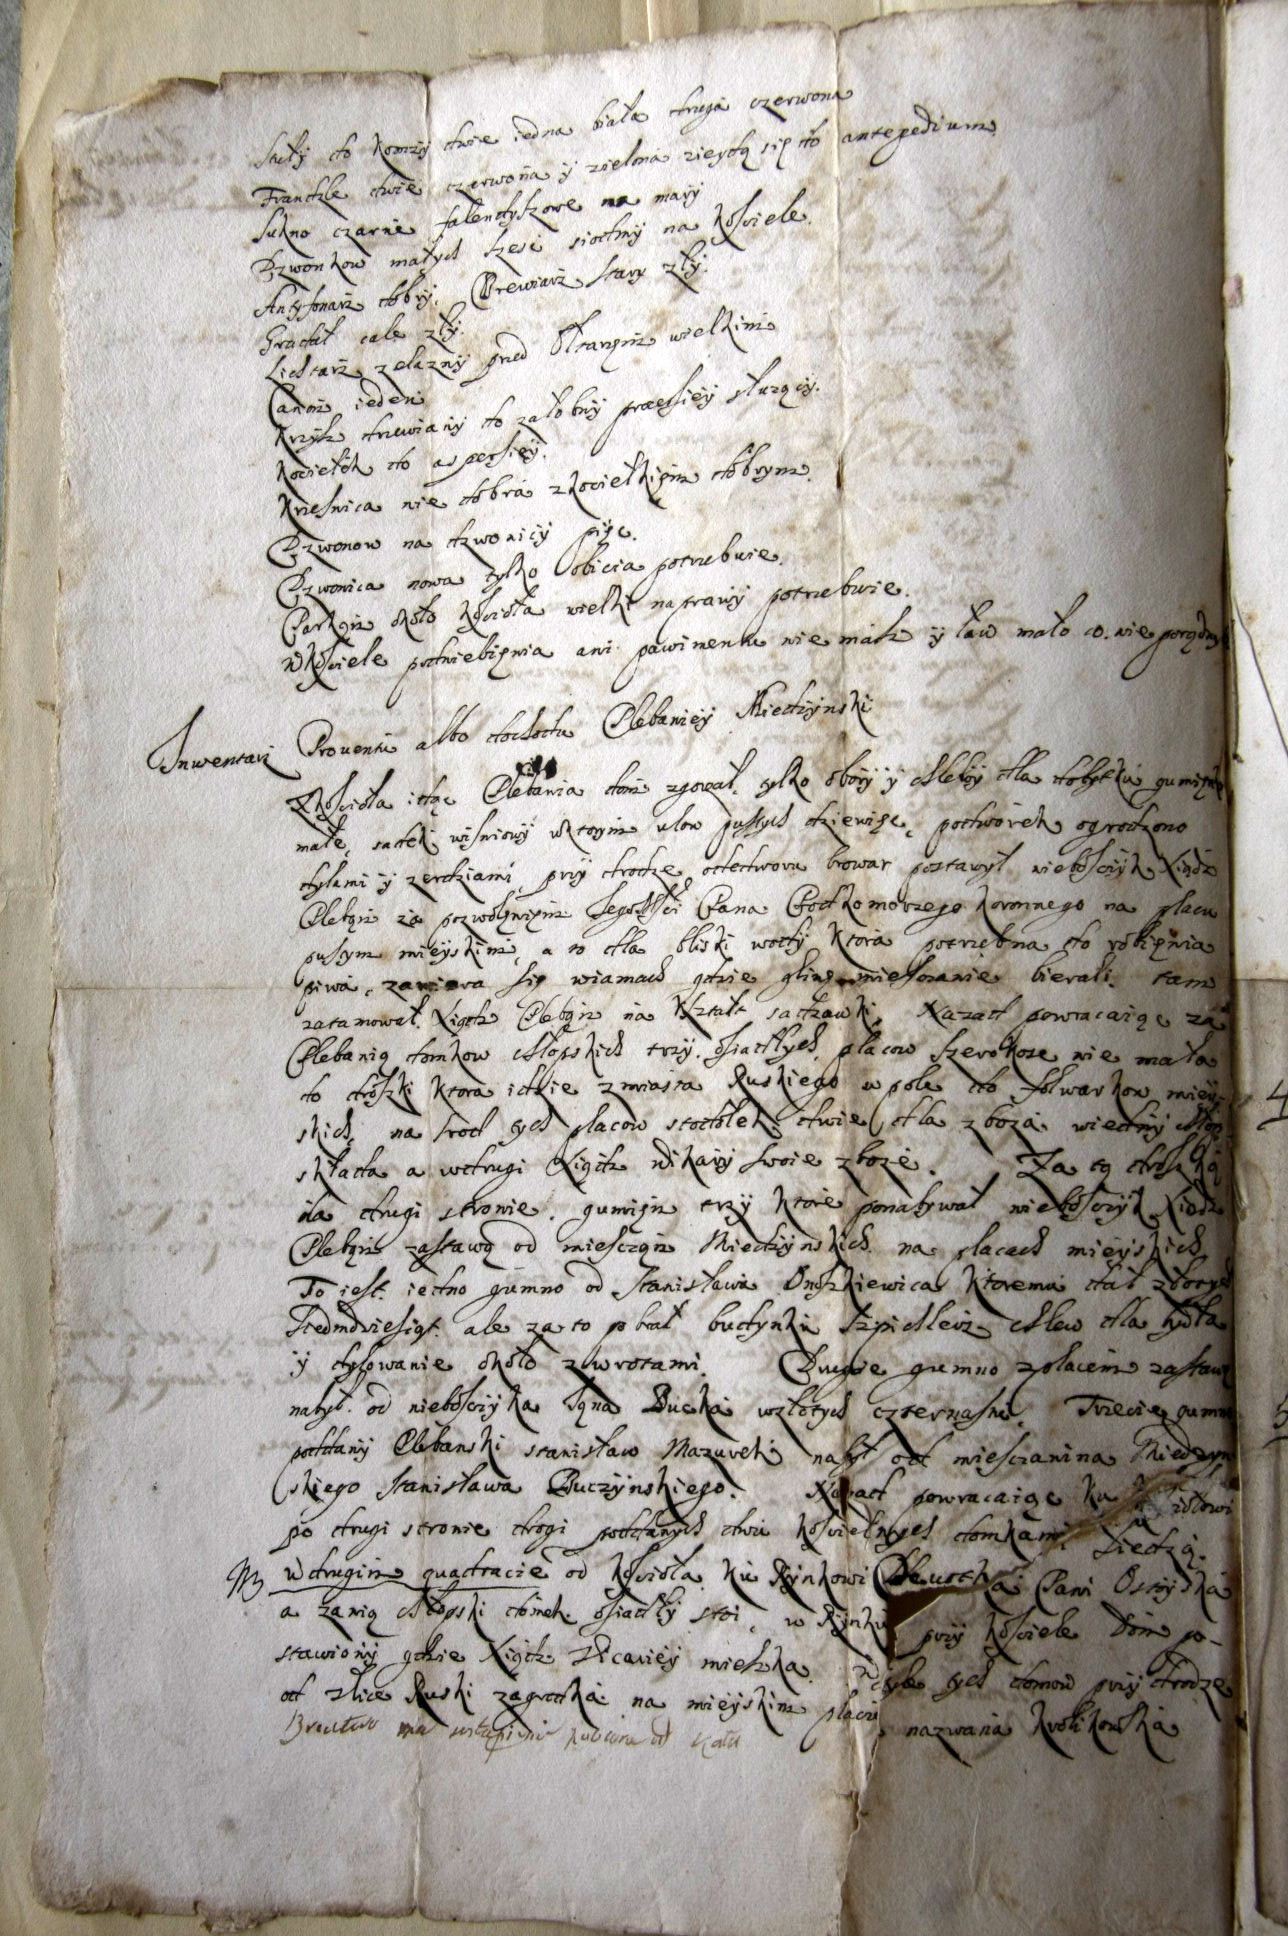 Suły do komży dwie iedna biała druga czerwona
Franckle dwie czerwona y zielona ziedą się do antepedium
Sukno czarne falendyszowe na mary
Dzwonkow małych sześć siodmy na kościele.
Antyfonarz dobry. Brewiarz stary zły.
Gradał cale zły.
Lichtarz zelazny pred Ołtarzem wielkim
Canon ieden
Krzyz drewiany do załobny procesiey słuzący.
Kociełek do aspersiey.
Krzesnica nie dobra z kociełkiem dobrym.
Dzwonow na dzwonicy pięć.
Dzwonica nowa tylko obicia potrzebuie.
Parkan około kościoła wielki naprawy potrzebuie.
W kościele podniebienia ani pawimentu nie masz y ław mało co. nie
Inwentarz Prouentu albo dochodu Plebaniey Miedzynski
Z kościoła idąc Plebania dom zgorzał, tylko obory y chlewy dla dobytku gumienko
małe, sadek wiśniowy w ktorym ulow pustych dziewięć, podworek ogrodzono
dylami y zerdziami, przy drodze od dworu browar postawył nieboszczyk Xiądz
Pleban za pozwolyniem Jegomści Pana Podkomorzego koronnego na placu
pustym mieyskim, a to dla bliski wody ktora potrzebna do robienia
piwa, zawiera się w iamach gdzie glinę mieszczanie bierali. tam
zatamował Xiądz Pleban na kształt sadzawki. Nazad powracaiąc za
Plebanią domkow chłopskich trzy. osiadłych, placow szerokosc nie mała
do drozki ktora idzie z miasta Ruskiego w pole do folwarkow miey-
skich, na srod tych placow stodolek dwie, dla zboza w iedny
składa a w drugi Xiądz wikary swoie zboze. Za tą drozką
na drugi stronie. gumien trzy ktore ponabywał nieboszczyk Xiądz
Pleban zastawą od mieszczan Miedzynskich na placach mieyskich
To iest. iedno gumno od Stanisława Onoszkiewica ktoremu dał złotych
Siedmdziesiąt. ale za to pobrał budynki szpichlerz chlew dla bydła
y dylowanie około z wrotami. Drugie gumno z placem zastawą
nabył. od nieboszczyka Jana Ducha w złotych czternastu. Trzecie gumno
poddany Plebanski Stanisław Mazurek nabył od mieszczanina Miedzyn
skiego Stanisława Buczynskiego. Nazad powracaiąc ku
po drugi stronie drogi poddanych dwu kościelnych domkami siedzą.
W drugim quadracie od kościoła ku Rynkowi Pani
a zanią chłopski domek osiadły stoi, w Rynku przy kościele Dom po-
stawiony gdzie Xiądz Vicariey mieszka. W tyle tych domow przy drodze
od Vlice Ruski zagrodka na mieyskim placu nazwana krolikowska